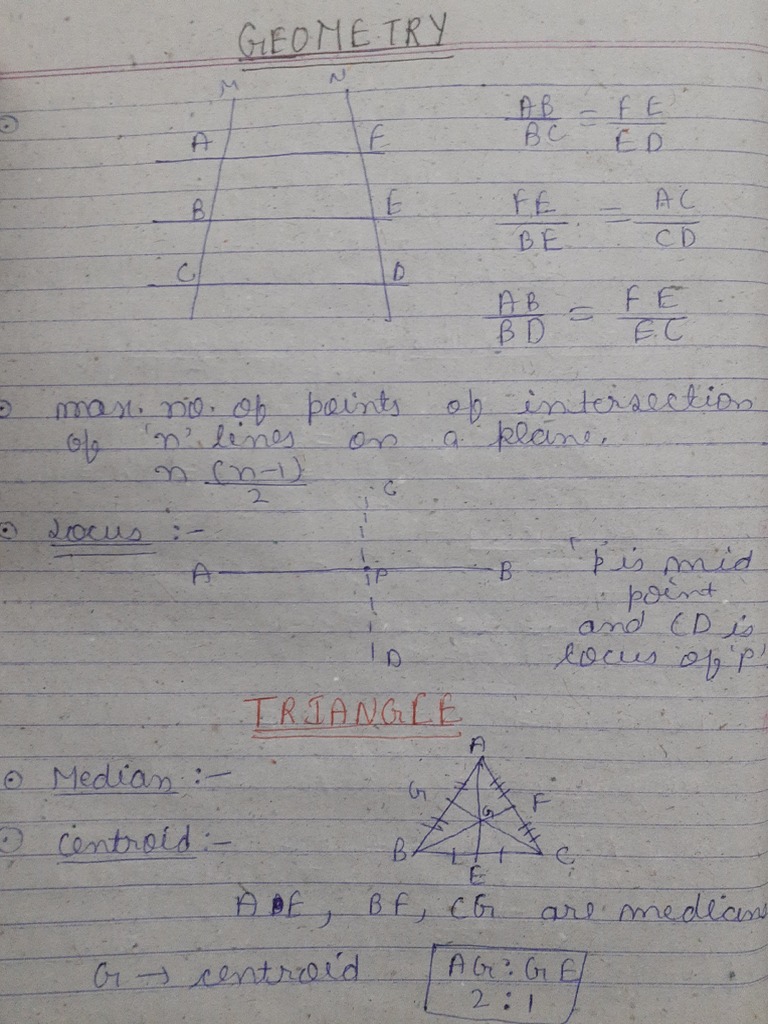 GEOMETRY
M N
A F
B E
C D
AB/BC = FE/ED
FE/BE = AC/CD
AB/BD = FE/EC
max. no. of points of intersection
of 'n' lines on a plane.
n (n-1)/2
Locus :-
C
A P B
D
'P is mid
point
and CD is
locus of 'P'
TRIANGLE
Median :-
A
G F
G
Centroid :-
B C
E
ADE, BF, CG are medians
G → centroid
AG : GE
2 : 1